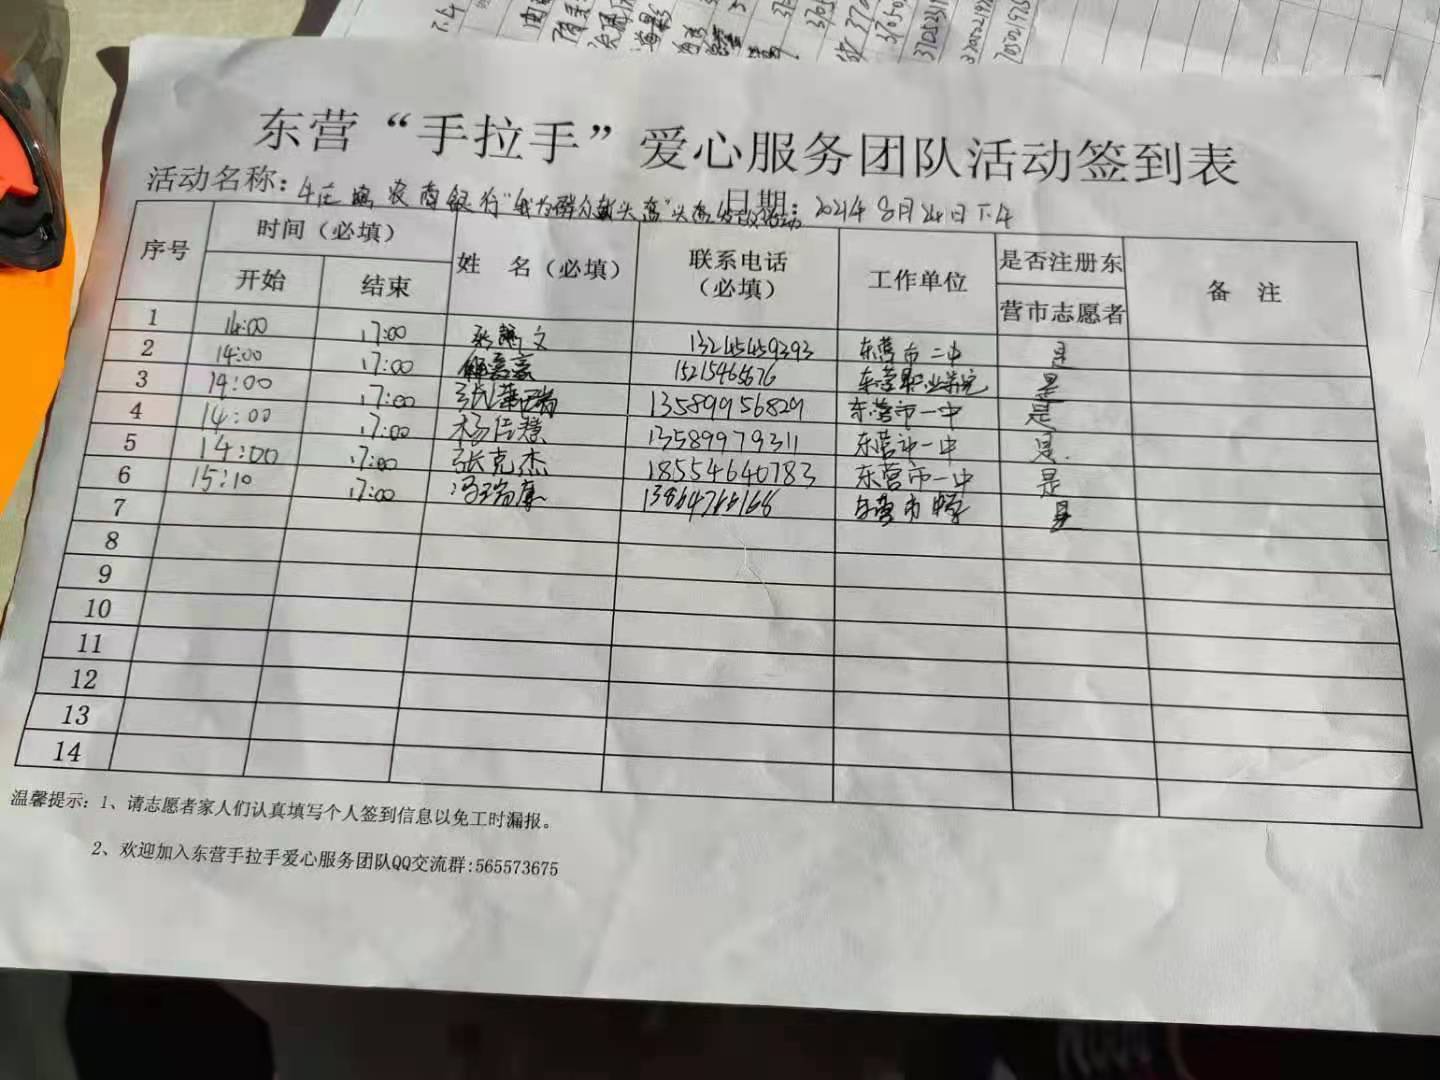 东营“手拉手”爱心服务团队活动签到表
活动名称：牛庄镇农商银行“我为群众献头盔”头盔发放活动 日期：2021年8月24日下午
序号 时间（必填） 姓 名（必填） 联系电话（必填） 工作单位 是否注册东营市志愿者 备 注
开始 结束
1 14:00 17:00 文 13245459393 东营市二中 是
2 14:00 17:00 15215465676 东营职业学院 是
3 14:00 17:00 张 13589956829 东营市一中 是
4 14:00 17:00 杨佳慧 13589979311 东营市一中 是
5 14:00 17:00 张克杰 18554640783 东营市一中 是
6 15:10 17:00 冯瑞 东营市 是
7
8
9
10
11
12
13
14
温馨提示：1、请志愿者家人们认真填写个人签到信息以免工时漏报。
2、欢迎加入东营手拉手爱心服务团队QQ交流群:565573675